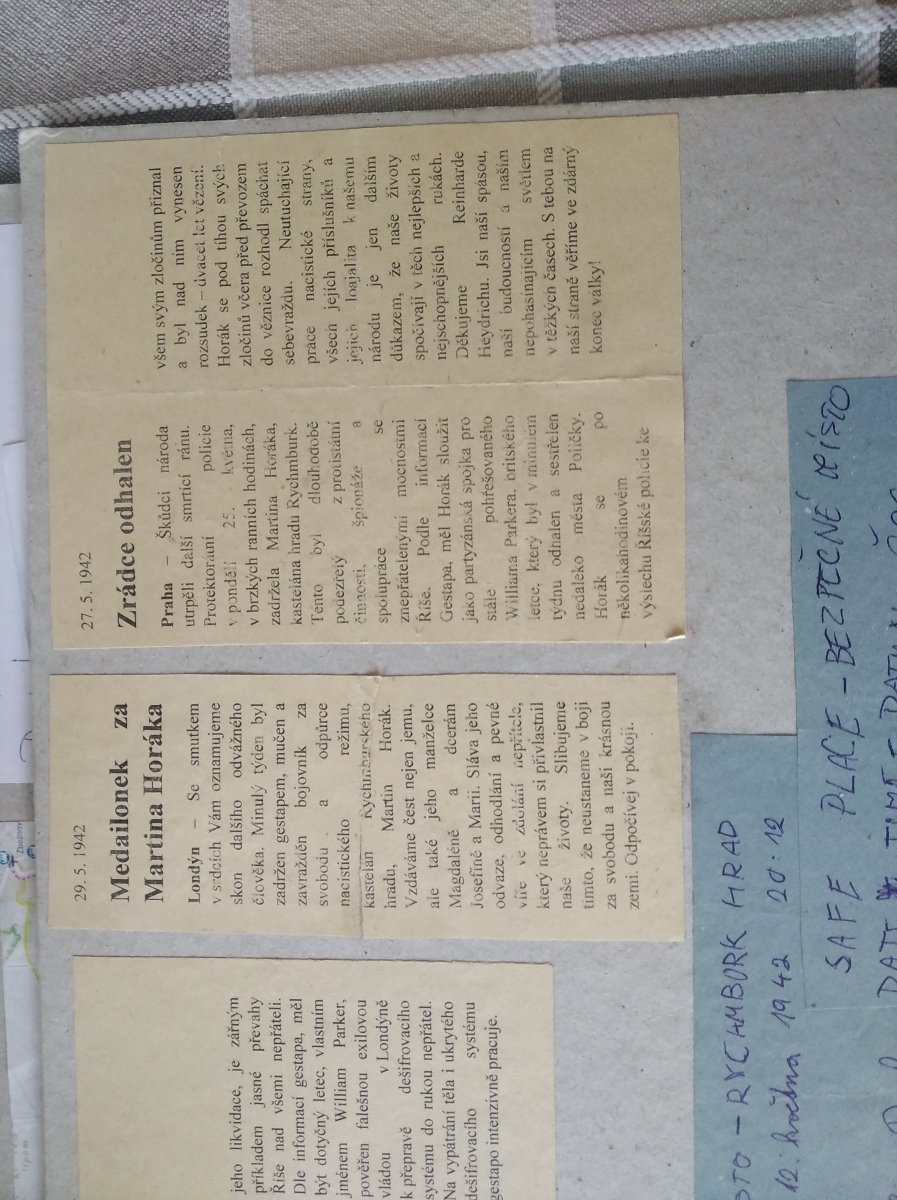 jeho likvidace, je zářným
příkladem jasné převahy
Říše nad všemi nepřáteli.
Dle informací gestapa, měl
být dotyčný letec, vlastním
jménem William Parker,
pověřen falešnou exilovou
vládou v Londýně
k přepravě dešifrovacího
systému do rukou nepřátel.
Na vypátrání těla i ukrytého
dešifrovacího systému
gestapo intenzivně pracuje.
29. 5. 1942
Medailonek za
Martina Horáka
Londýn – Se smutkem
v srdcích Vám oznamujeme
skon dalšího odvážného
člověka. Minulý týden byl
zadržen gestapem, mučen a
zavražděn bojovník za
svobodu a odpůrce
nacistického režimu,
kastelán Rychmburského
hradu, Martin Horák.
Vzdáváme čest nejen jemu,
ale také jeho manželce
Magdaleně a dcerám
Josefíně a Marii. Sláva jeho
odvaze, odhodlání a pevné
víře ve zdolání nepřítele,
který neprávem si přivlastnil
naše životy. Slibujeme
tímto, že neustaneme v boji
za svobodu a naši krásnou
zemi. Odpočívej v pokoji.
27. 5. 1942
Zrádce odhalen
Praha – Škůdci národa
utrpěli další smrtící ránu.
Protektorátní policie
v pondělí 25. května,
v brzkých ranních hodinách,
zadržela Martina Horáka,
kastelána hradu Rychmburk.
Tento byl dlouhodobě
podezřelý z protistátní
činnosti, špionáže a
spolupráce se
znepřátelenými mocnostmi
Říše. Podle informací
Gestapa, měl Horák sloužit
jako partyzánská spojka pro
stále pohřešovaného
Williama Parkera, britského
letce, který byl v minulém
týdnu odhalen a sestřelen
nedaleko města Poličky.
Horák se po
několikahodinovém
výslechu Říšské policie ke
všem svým zločinům přiznal
a byl nad ním vynesen
rozsudek – dvacet let vězení.
Horák se pod tíhou svých
zločinů včera před převozem
do věznice rozhodl spáchat
sebevraždu. Neutuchající
práce nacistické strany,
všech jejích příslušníků a
jejich loajalita k našemu
národu je jen dalším
důkazem, že naše životy
spočívají v těch nejlepších a
nejschopnějších rukách.
Děkujeme Reinharde
Heydrichu. Jsi naší spásou,
naší budoucností a naším
nepohasínajícím světlem
v těžkých časech. S tebou na
naší straně věříme ve zdárný
konec války!
STO - RYCHMBORK HRAD
12 1942 20:12
SAFE PLACE - BEZPEČNÉ MÍSTO
TIME